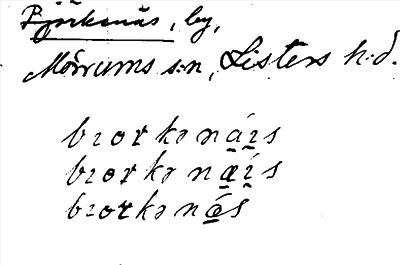 Björkenäs, by,
Mörrums s:n, Listers h:d.
bɿorkənáɿs
bɿorkənǽɿs
bɿorkənǿs